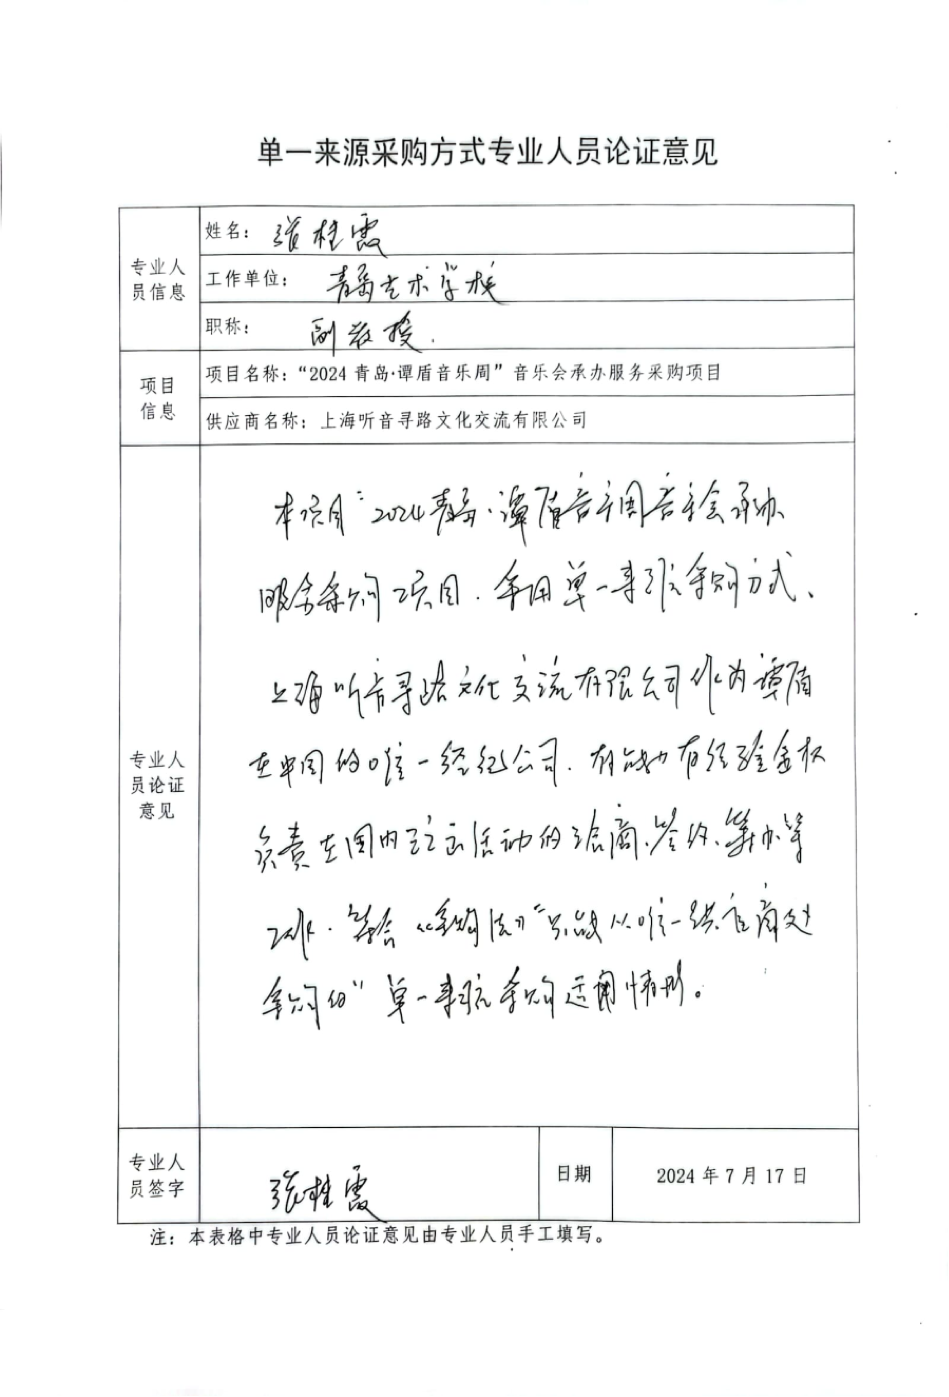 单一来源采购方式专业人员论证意见
专业人
员信息
姓名：张桂霞
工作单位：青岛艺术学校
职称：副教授.
项目
信息
项目名称：“2024 青岛·谭盾音乐周”音乐会承办服务采购项目
供应商名称：上海听音寻路文化交流有限公司
专业人
员论证
意见
本项目“2024青岛·谭盾音乐周音乐会承办
服务采购项目.采用单一来源采购方式、
上海听音寻路文化交流有限公司作为谭盾
在中国的唯一经纪公司.有能力有经验全权
负责在国内演出活动的洽商、签约、筹办等
工作.符合《采购法》“只能从唯一供应商处
采购的”单一来源采购适用情形。
专业人
员签字
张桂霞
日期
2024 年 7 月 17 日
注：本表格中专业人员论证意见由专业人员手工填写。